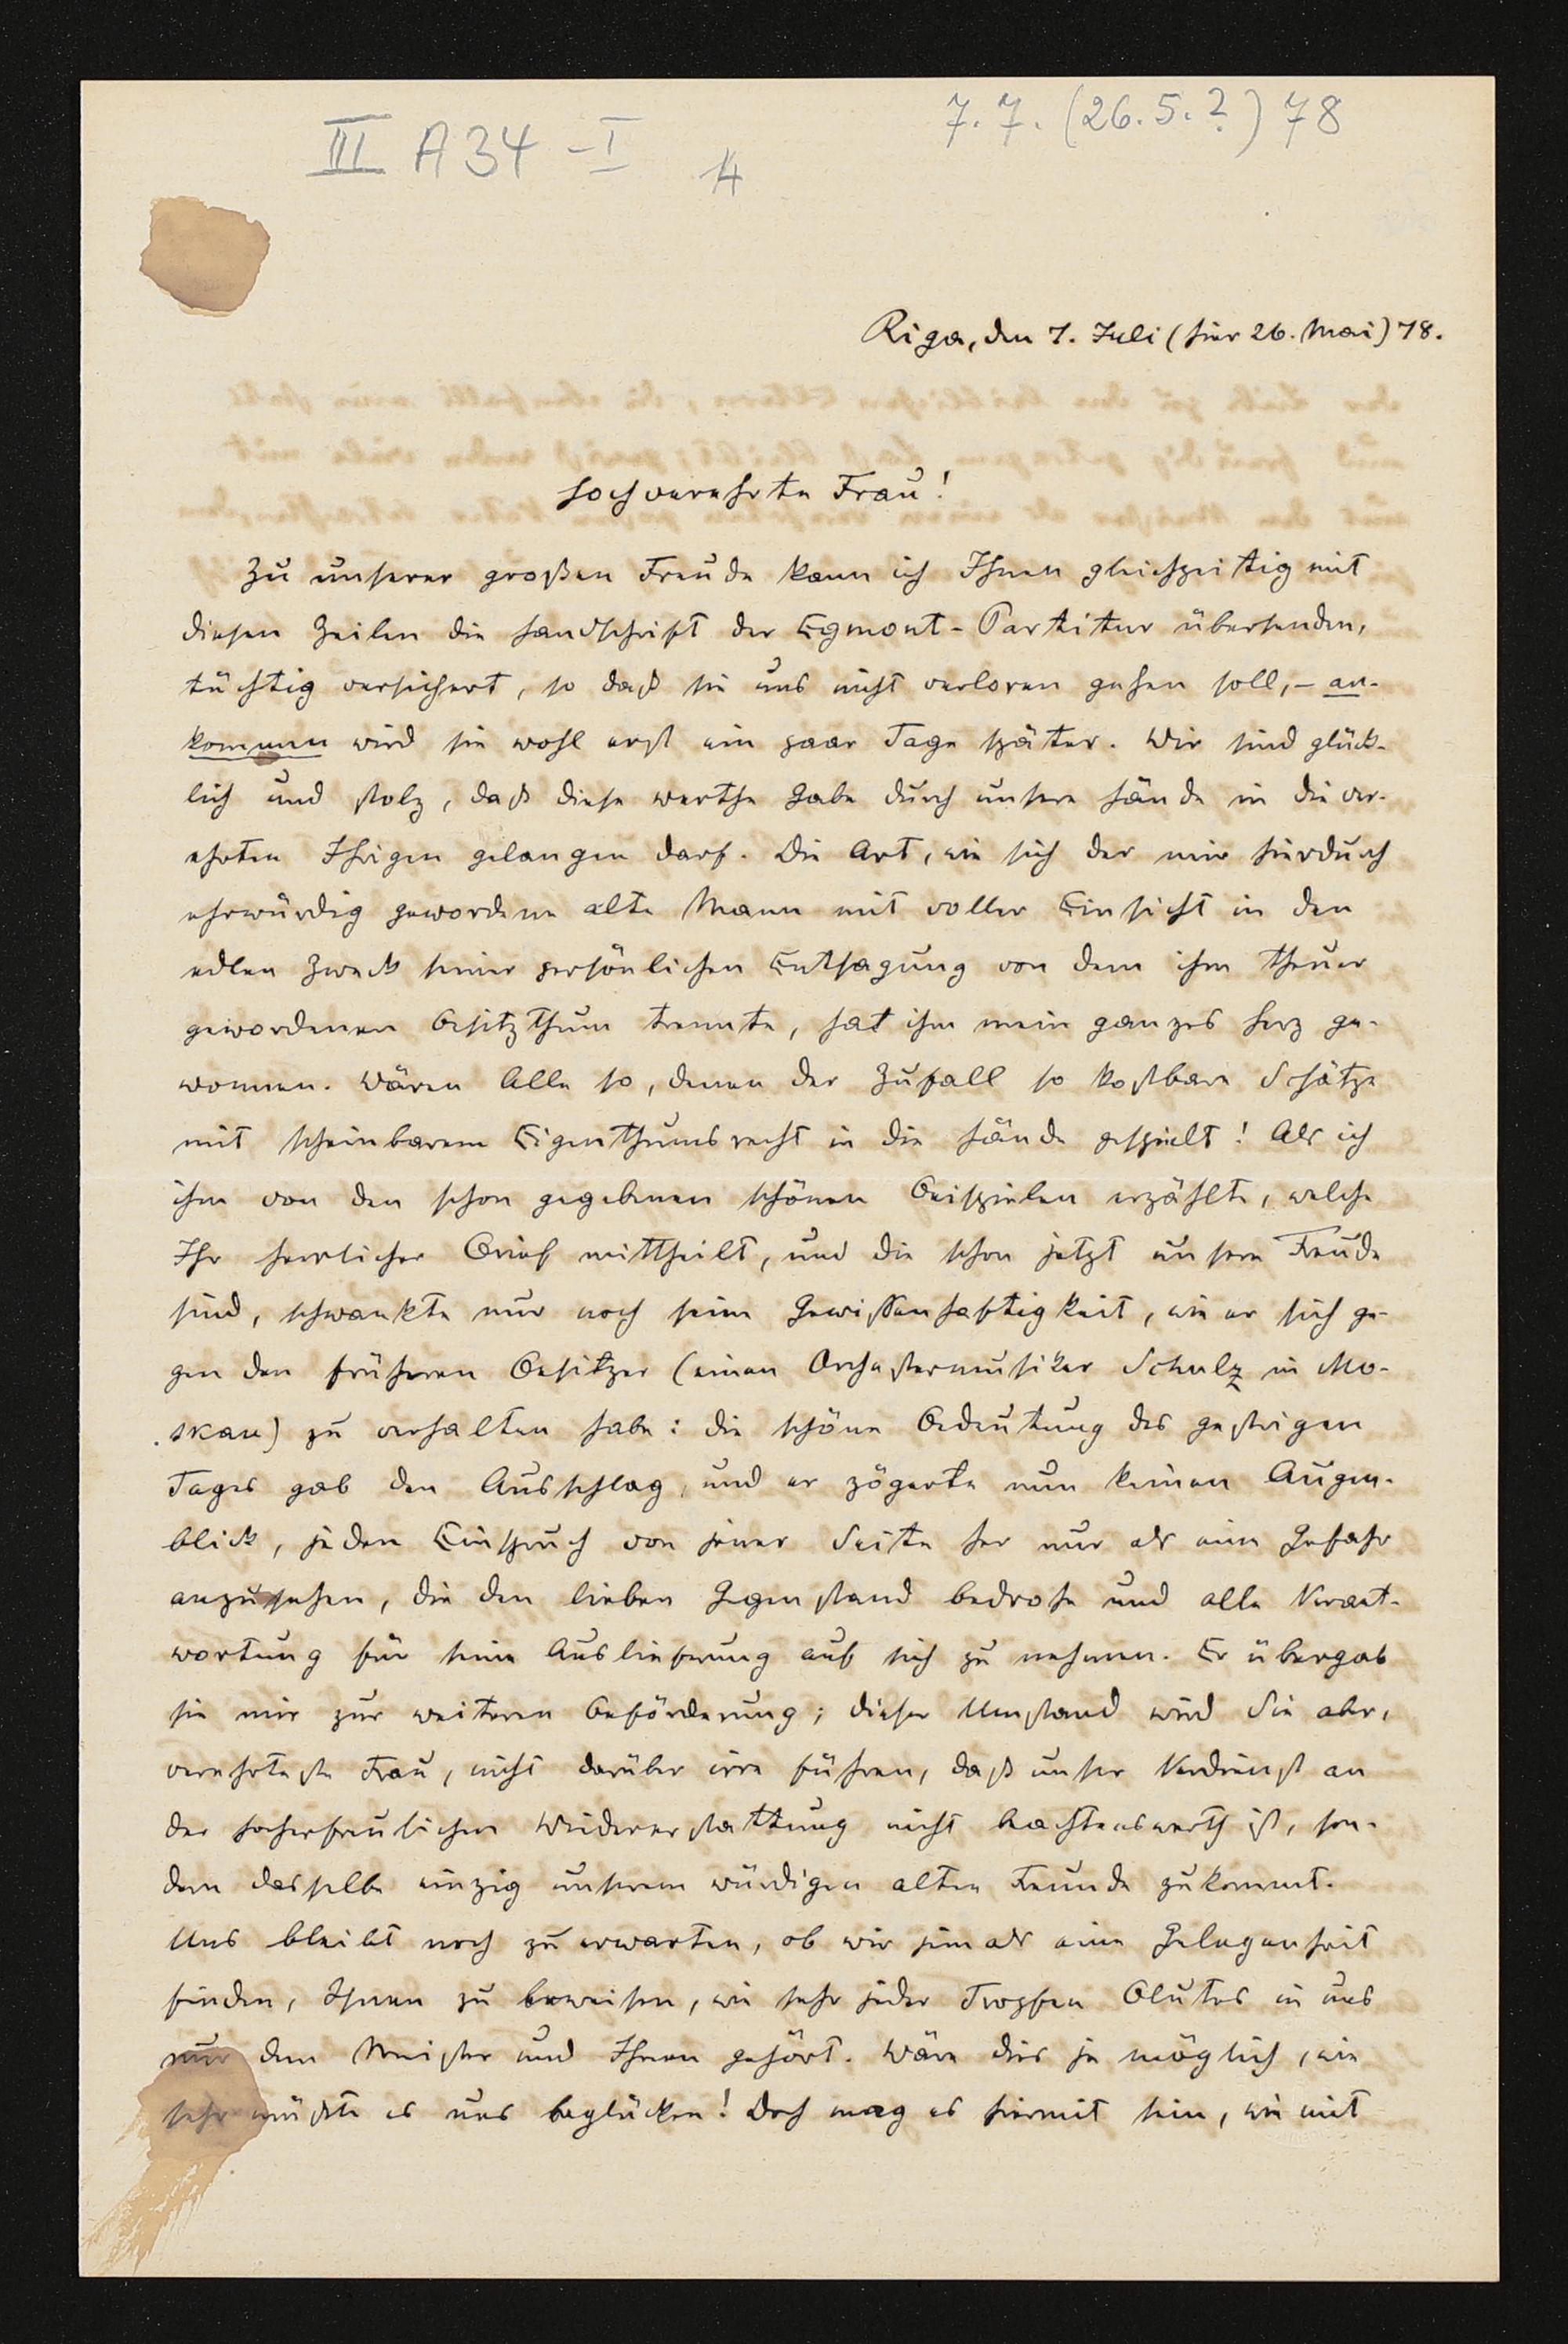 7. 7. (26. 5. ?) 78
III A 34 - I
4
Riga, den 7. Juli (hier 26. Mai) 78.
Hochverehrte Frau!
Zu unserer großen Freude kann ich Ihnen gleichzeitig mit
diesen Zeilen die Handschrift der Egmont-Partitur übersenden,
tüchtig versichert, so daß sie uns nicht verloren gehen soll, – an-
kommen wird sie wohl erst ein paar Tage später. Wir sind glück-
lich und stolz, daß diese werthe Gabe durch unsere Hände in die ver-
ehrten Ihrigen gelangen darf. Die Art, wie sich der mir hierdurch
ehrwürdig gewordene alte Mann mit voller Einsicht in den
edlen Zweck seiner persönlichen Entsagung von dem ihm theuer
gewordenen Besitzthum trennte, hat ihm mein ganzes Herz ge-
wonnen. Wären Alle so, denen der Zufall so kostbare Schätze
mit scheinbarem Eigenthumsrecht in die Hände gespielt! Als ich
ihm von den schon gegebenen schönen Beispielen erzählte, welche
Ihr herrlicher Brief mittheilt, und die schon jetzt unsere Freude
sind, schwankte nur noch seine Gewissenhaftigkeit, wie er sich ge-
gen den früheren Besitzer (einen Orchestermusiker Schulz in Mo-
skau) zu verhalten habe: die schöne Bedeutung des gestrigen
Tages gab den Ausschlag, und er zögerte nun keinen Augen-
blick, jeden Einspruch von jener Seite her nur als eine Gefahr
anzusehen, die den lieben Gegenstand bedrohe und alle Verant-
wortung für seine Auslieferung auf sich zu nehmen. Er übergab
sie mir zur weiteren Beförderung; dieser Umstand wird Sie aber,
verehrteste Frau, nicht darüber irre führen, daß unser Verdienst an
der hocherfreulichen Wiedererstattung nicht beachtenswerth ist, son-
dern dasselbe einzig unserem würdigen alten Freunde zukommt.
Uns bleibt noch zu erwarten, ob wir jemals eine Gelegenheit
finden, Ihnen zu beweisen, wie sehr jeder Tropfen Blutes in uns
nur dem Meister und Ihnen gehört. Wäre dies je möglich, wie
sehr müßte es uns beglücken! Doch mag es hiermit sein, wie mit